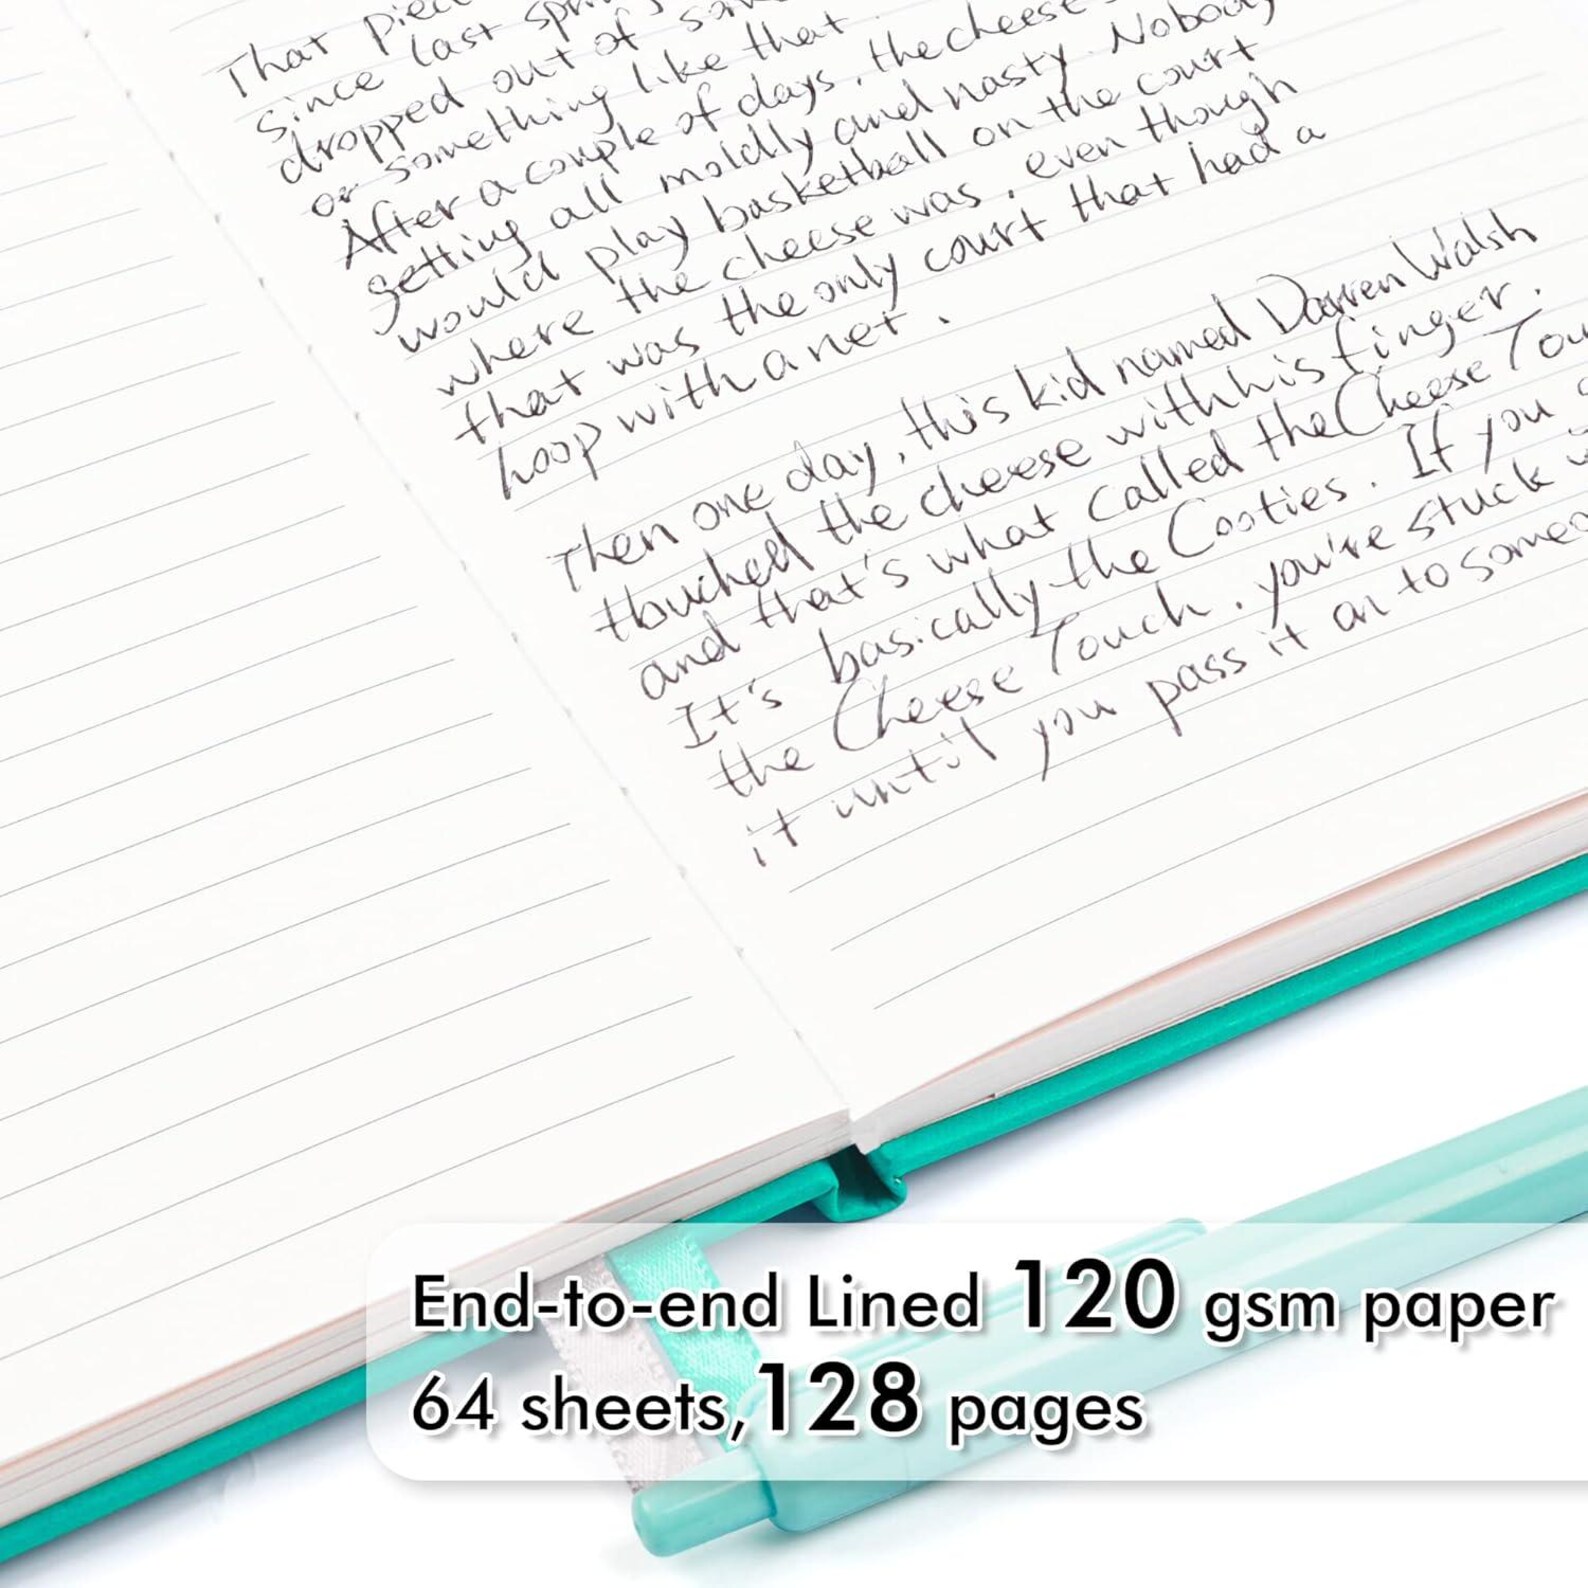 That piec
since last spri
dropped out of
or something like that
After a couple of days, the cheese
getting all moldly and nasty. Nobody
would play basketball on the court
where the cheese was, even though
that was the only court that had a
hoop with a net.
Then one day, this kid named Darren Walsh
touched the cheese with his finger.
and that's what called the Cheese Tou
It's basically the Cooties. If you
the Cheese Touch, you're stuck w
it until you pass it on to someo
End-to-end Lined 120 gsm paper
64 sheets,128 pages